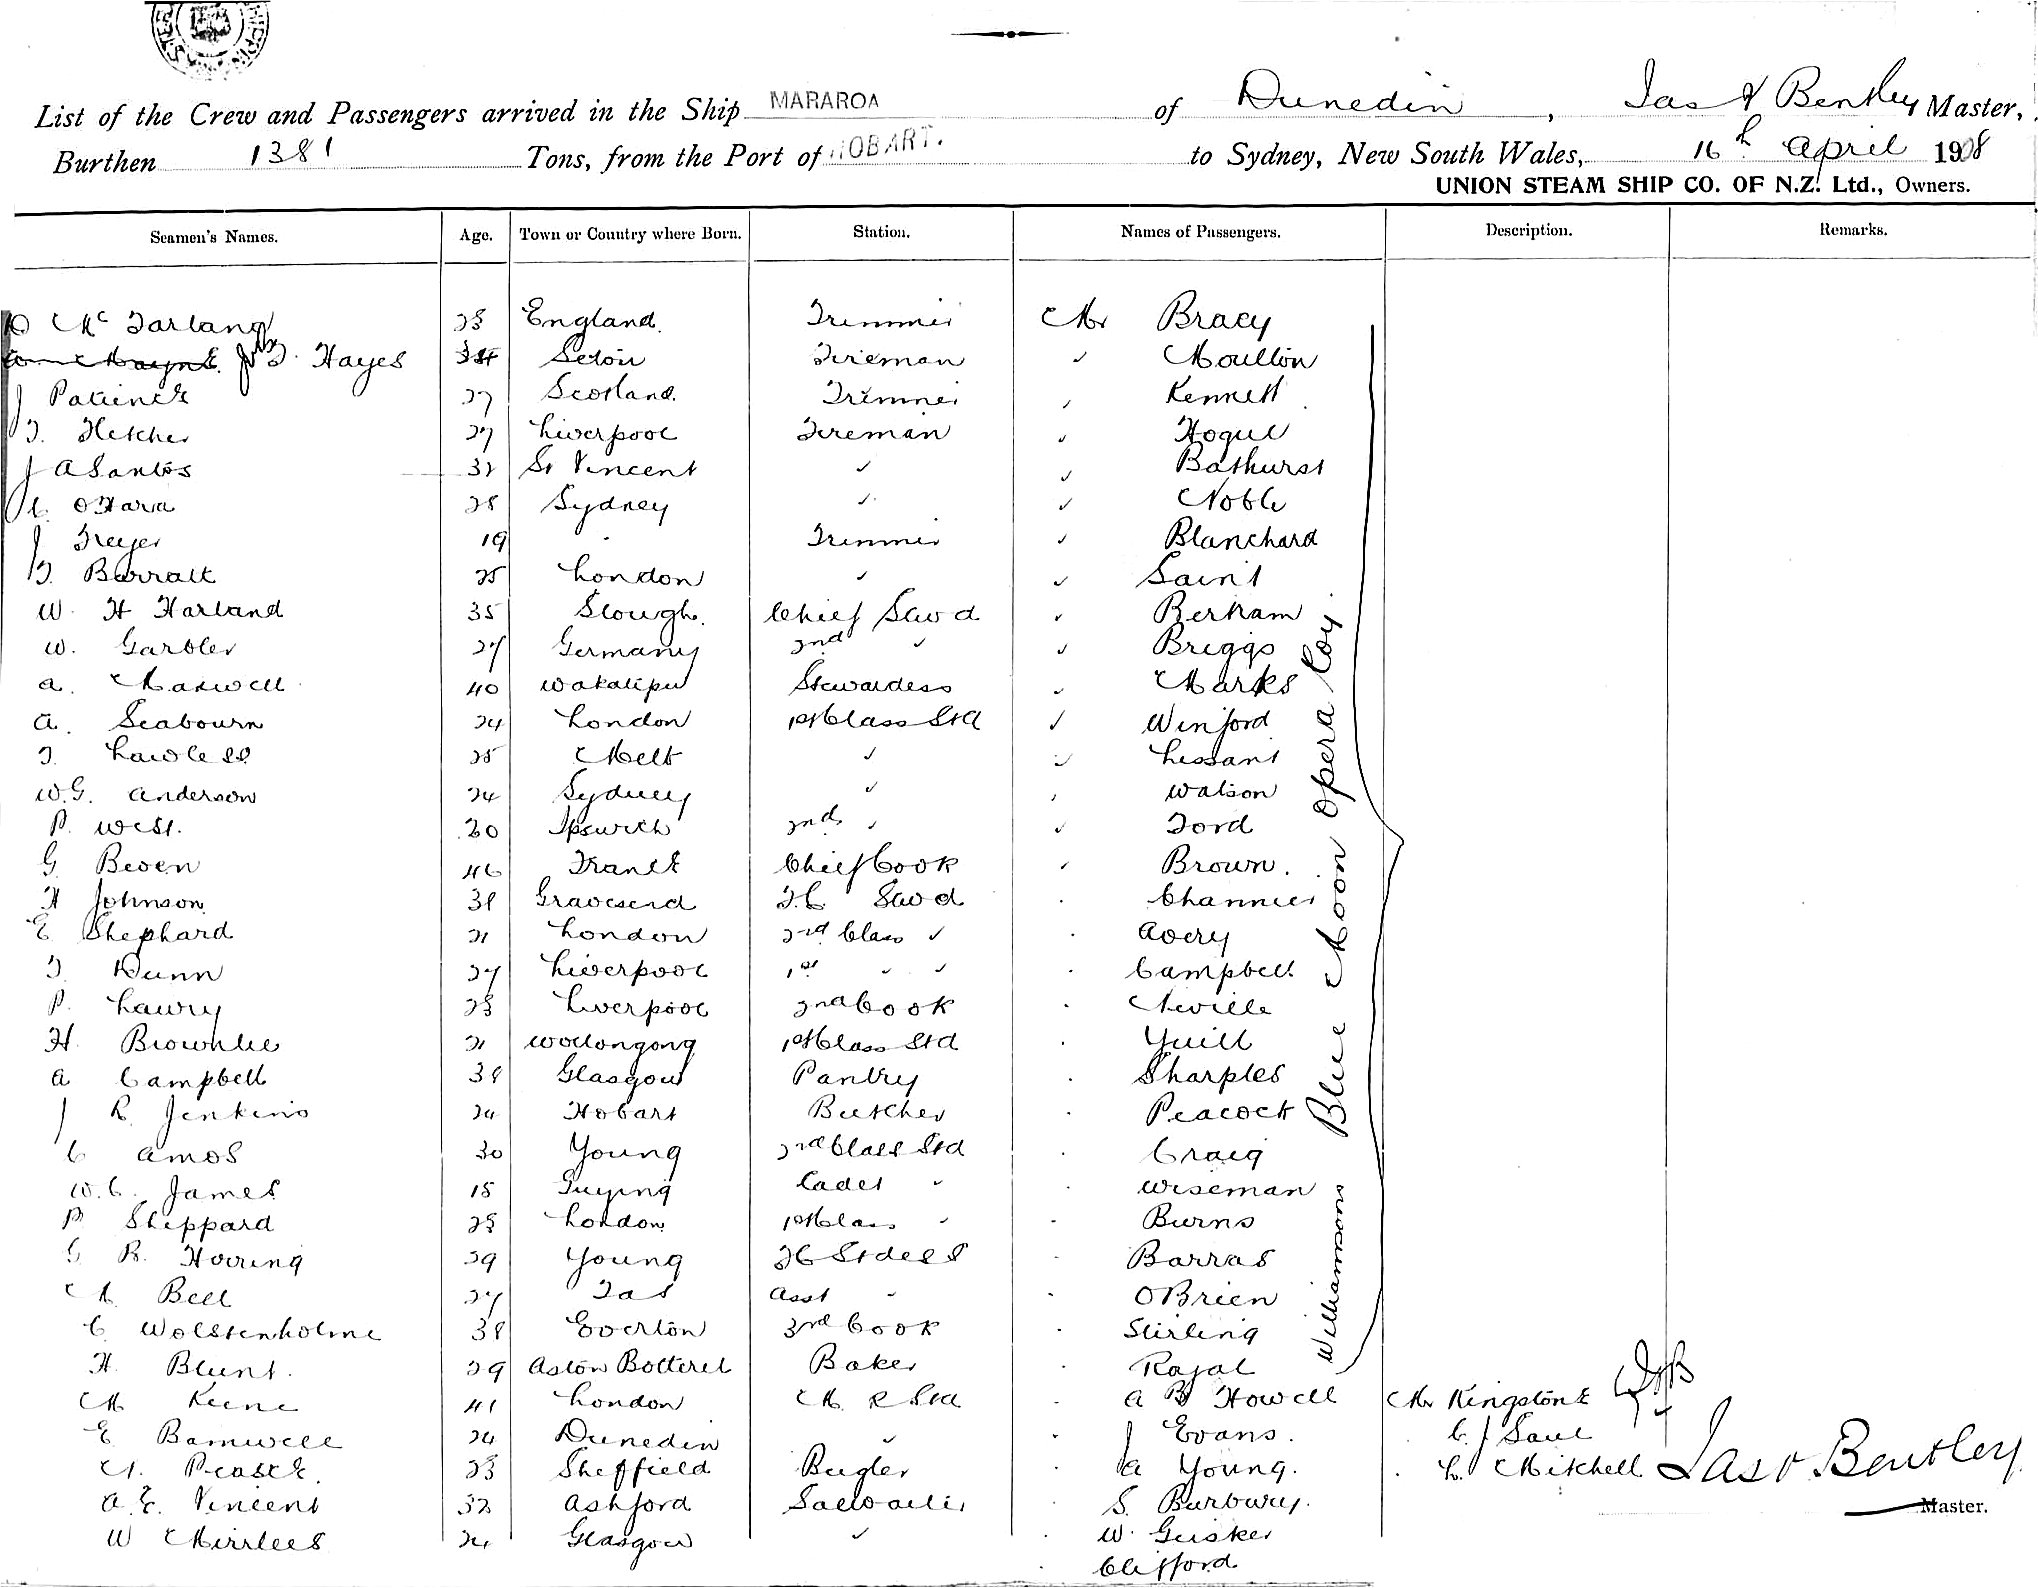 List of the Crew and Passengers arrived in the Ship MARAROA of Dunedin, Jas Bentley Master,
Burthen 1381 Tons, from the Port of HOBART. to Sydney, New South Wales, 16th April 1908
UNION STEAM SHIP CO. OF N.Z. Ltd., Owners.
Seamen's Names. Age. Town or Country where Born. Station. Names of Passengers. Description. Remarks.
Mc Farland 28 England. Trimmer Mr Bracy
Hayes Fireman Moulton
J Patience 27 Scotland. Trimmer Kennett
T. Fletcher 27 Liverpool Fireman Hogue
J A Santos 32 St Vincent Bathurst
C. O'Hara 28 Sydney Noble
J 19 Trimmer Blanchard
T. Barratt 25 London Saint
W. H Harland 35 Slough. Chief Stwd Bertram
W. Garbler 27 Germany 2nd Briggs
A. Maxwell 40 Wakatipu Stewardess Marks
A. Seabourn 24 London 1st Class Std Winford
T. Lawless 25 Melb Lissant
W.G. Anderson 24 Sydney Watson
P. West. 30 Ipswich 2nd Ford
G. Beven 46 France Chief Cook Brown.
H Johnson 38 Gravesend F.C Stwd
E Shephard 21 London 2nd Class Avery
T. Dunn 27 Liverpool 1st Campbell
P. Lawry 28 Liverpool 2nd Cook Neville
H. Brownlie 21 Wollongong 1st Class Std Yuill
A Campbell 38 Glasgow Pantry Sharples
J R. Jenkins 24 Hobart Butcher Peacock
C Amos 30 Young 2nd Class Std Craig
W.C. James 18 Cadet Wiseman
P Sheppard 28 London 1st Class Burns
R. 29 Young FC Stdess Barras
M. Bell 27 Tas Asst O'Brien
C Wolstenholme 38 Everton 3rd Cook Stirling
H. Blunt. 29 Aston Botterel Baker
M Keene 41 London M. R Std A B Howell Mr Kingstone
E Bamwell 24 Dunedin J Evans. C. J Saul
Pease 23 Sheffield Bugler A Young. L. Mitchell
A.E. Vincent 32 Ashford Saloon S. Burbury.
W Mirrlees 24 Glasgow W. Geisker
Clifford
Williamsons Blue Moon Opera Coy
Jas Bentley
Master.